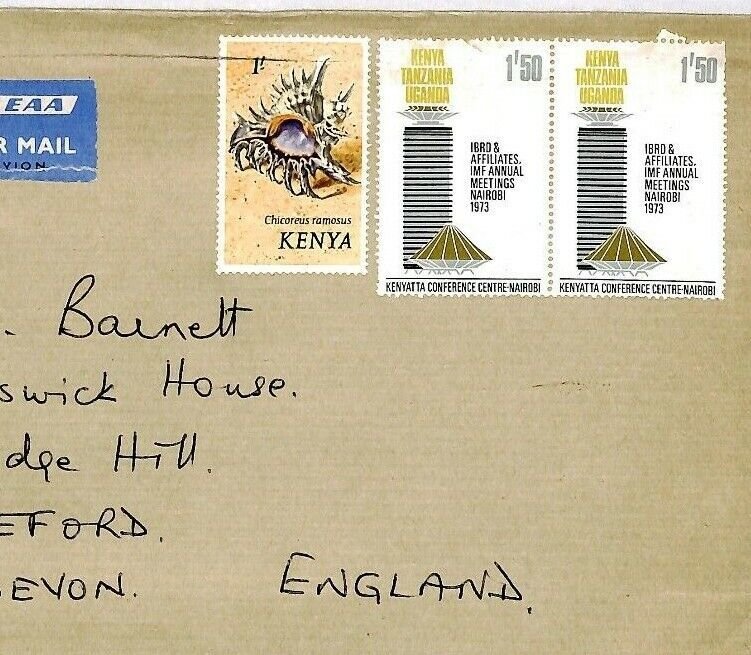 EAA
R MAIL
VION
1/
Chicoreus ramosus
KENYA
KENYA
TANZANIA
UGANDA
1/50
IBRD &
AFFILIATES.
IMF ANNUAL
MEETINGS
NAIROBI
1973
KENYATTA CONFERENCE CENTRE-NAIROBI
KENYA
TANZANIA
UGANDA
1/50
IBRD &
AFFILIATES.
IMF ANNUAL
MEETINGS
NAIROBI
1973
KENYATTA CONFERENCE CENTRE-NAIROBI
. Barnett
swick House.
dge Hill.
EFORD.
DEVON. ENGLAND.